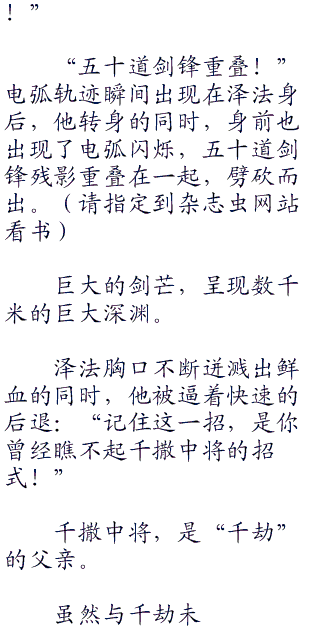 ！”
“五十道剑锋重叠！”
电弧轨迹瞬间出现在泽法身
后，他转身的同时，身前也
出现了电弧闪烁，五十道剑
锋残影重叠在一起，劈砍而
出。（请指定到杂志虫网站
看书）
巨大的剑芒，呈现数千
米的巨大深渊。
泽法胸口不断迸溅出鲜
血的同时，他被逼着快速的
后退：“记住这一招，是你
曾经瞧不起千撒中将的招
式！”
千撒中将，是“千劫”
的父亲。
虽然与千劫未